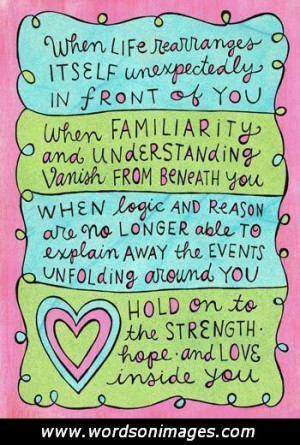 When LIFe rearranges
ITSELF unexpectedly
IN fRONT of YOU
When FAMILIARITy
and UNDeRSTANDING
Vanish FROM BeNeATH you
WHEN logic AND ReASON
are no LONGeR able TO
explain AWAY the EVENTS
UNfOLDING around YOU
HOLD on to
the STReNGTH·
hope·and LOVE
inside you
www.wordsonimages.com